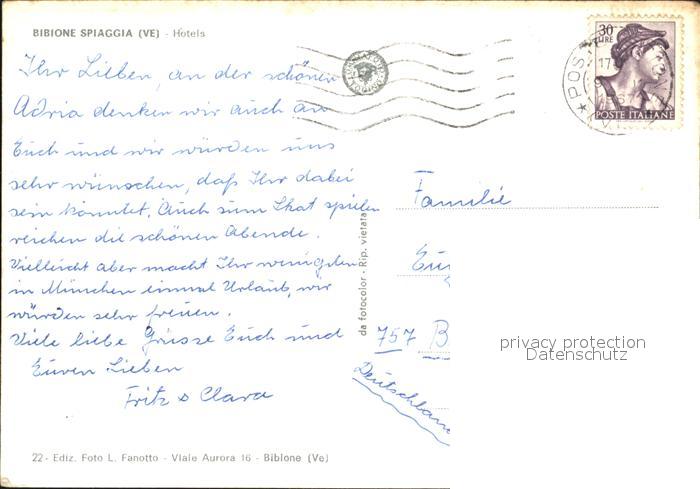 BIBIONE SPIAGGIA (VE) - Hotels
Ihr Lieben, an der schönen
Adria denken wir auch an
Euch und wir würden uns
sehr wünschen, daß Ihr dabei
sein könntet. Auch zum Skat spielen
reichen die schönen Abende.
Vielleicht aber macht Ihr wenigsten
in München einmal Urlaub, wir
würden sehr freuen.
Viele liebe Grüsse Euch und
Euren Lieben
Fritz & Clara
22 - Ediz. Foto L. Fanotto - Viale Aurora 16 - Bibione (Ve)
da fotocolor - Rip. vietata
30
LIRE
POSTE ITALIANE
POS
17
Familie
757 B
Deutschland
privacy protection
Datenschutz